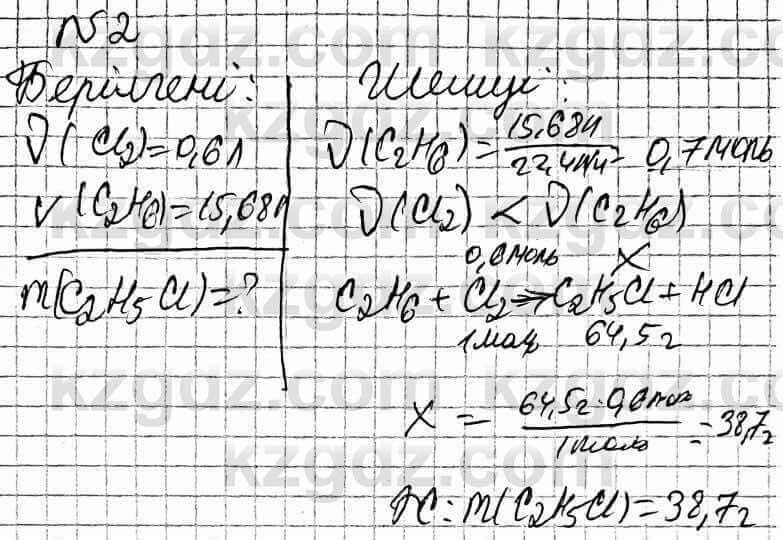 №2
Берілгені:
ϑ(Cl₂)=0,6л
V(C₂H₆)=15,68л
m(C₂H₅Cl)=?
Шешуі:
ϑ(C₂H₆)=15,68л/22,4л/м=0,7моль
ϑ(Cl₂)<ϑ(C₂H₆)
0,6моль X
C₂H₆+Cl₂→C₂H₅Cl+HCl
1моль 64,5г
X = 64,5г·0,6моль/1моль=38,7г
Ж: m(C₂H₅Cl)=38,7г
kzgdz.com